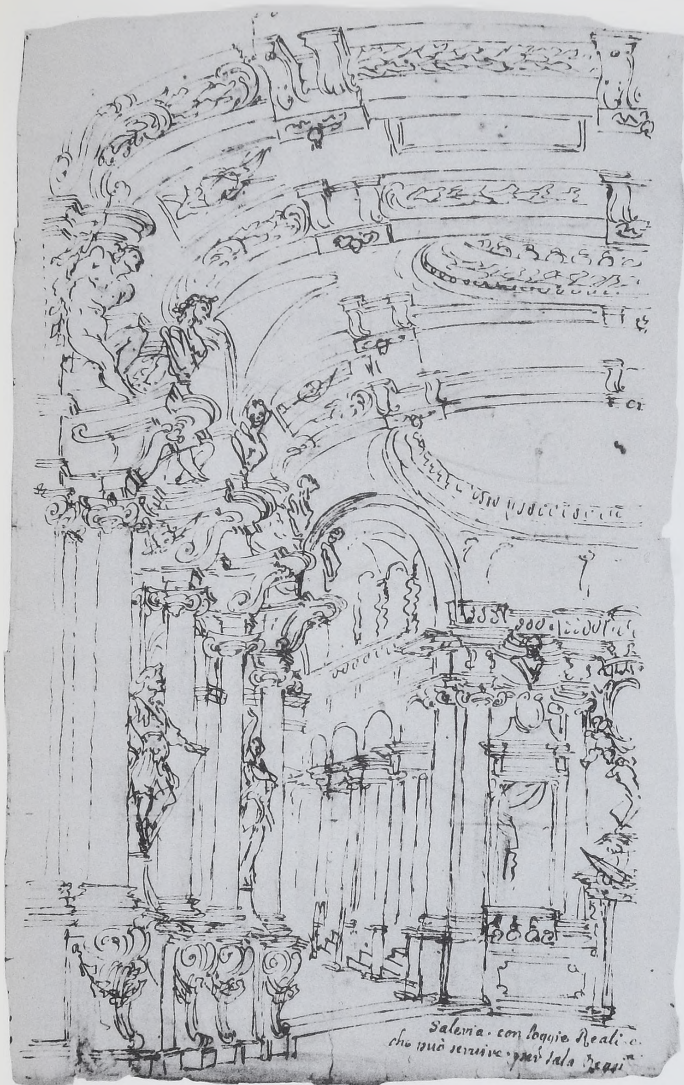 Saleria. con loggie Reali. e.
che può servire. per sala Regia